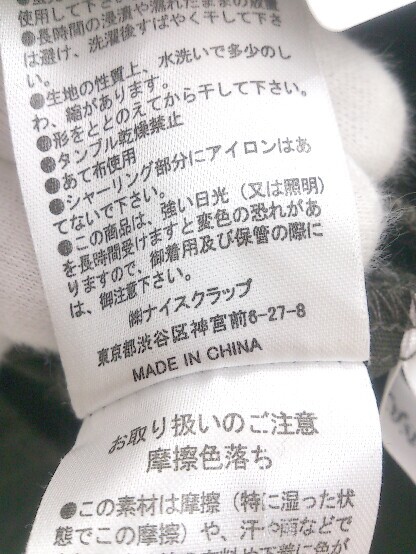 使用して下さい。
●長時間の浸漬や濡れたままの放置
は避け、洗濯後すばやく干して下さ
い。
●生地の性質上、水洗いで多少のし
わ、縮があります。
●形をととのえてから干して下さい。
●タンブル乾燥禁止
●あて布使用
●シャーリング部分にアイロンはあ
てないで下さい。
●この商品は、強い日光（又は照明）
を長時間受けますと変色の恐れがあ
りますので、御着用及び保管の際に
は、御注意下さい。
㈱ナイスクラップ
東京都渋谷区神宮前6-27-8
MADE IN CHINA
お取り扱いのご注意
摩擦色落ち
●この素材は摩擦（特に湿った状
態でこの摩擦）や、汗や雨などで